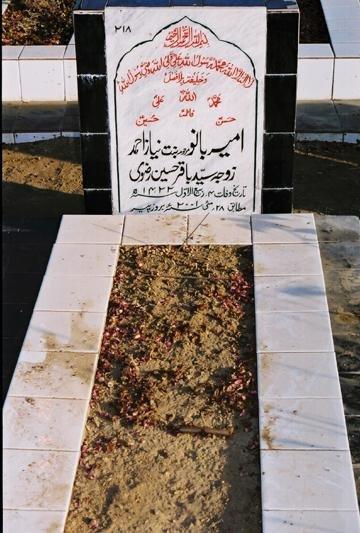 ۲۱۸
بسم اللہ الرحمن الرحیم
لا الہ الا اللہ محمد رسول اللہ علی ولی اللہ وصی رسول اللہ
وخلیفتہ بلا فصل
محمدؐ اللہ علیؑ
فاطمہؑ
حسنؑ حسینؑ
امیر بانو بنت نیاز احمد
زوجہ سید باقر حسین رضوی
تاریخ وفات ۴ ربیع الاول ۱۴۲۲ھ
مطابق ۲۸ مئی ۲۰۰۱ء بروز پیر